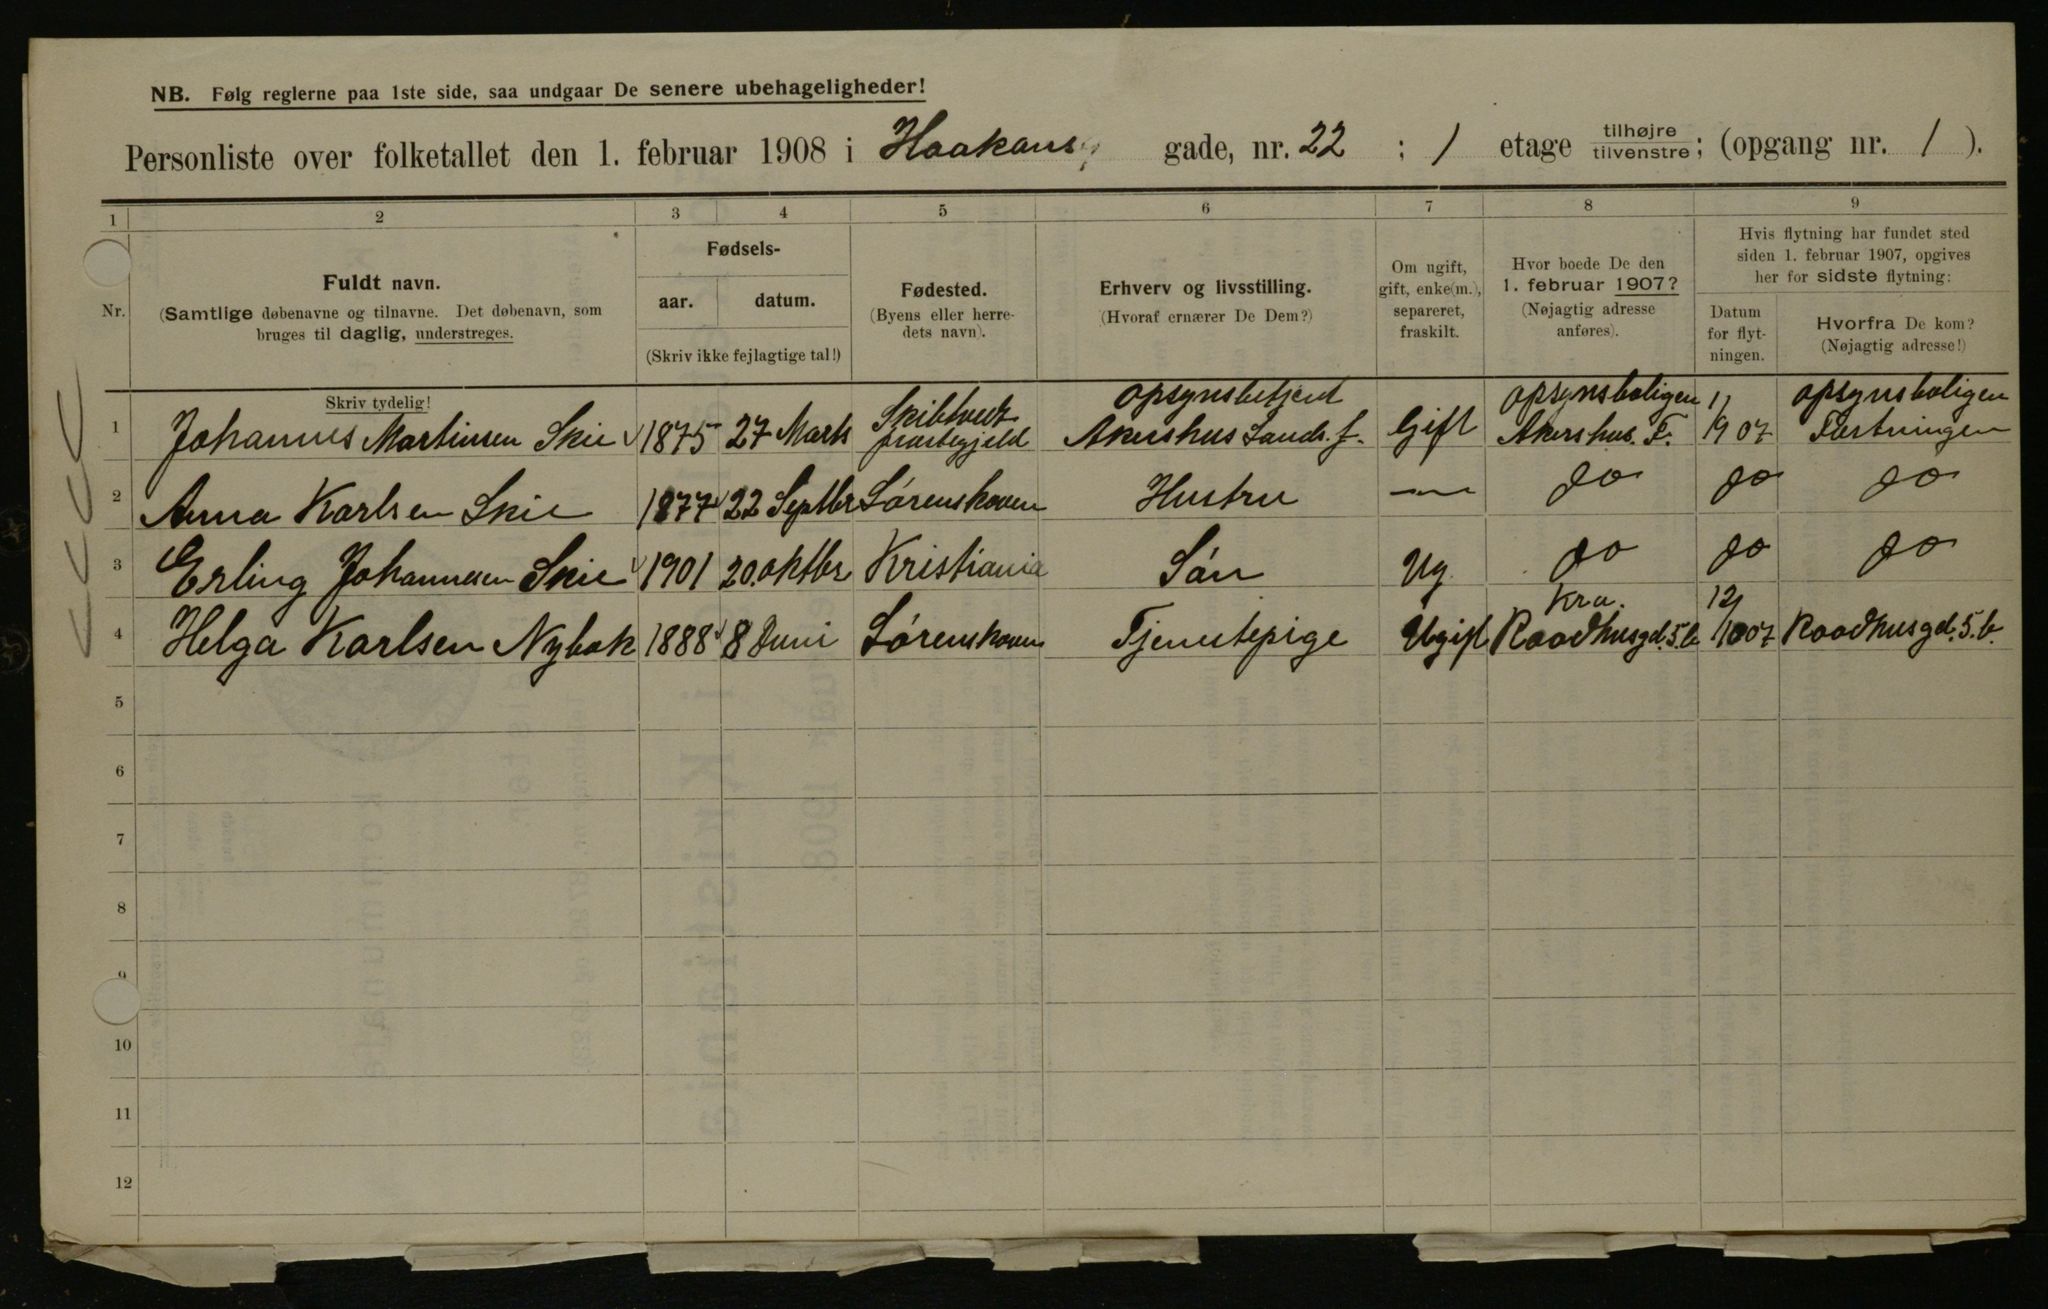 NB. Følg reglerne paa 1ste side, saa undgaar De senere ubehageligheder!
Personliste over folketallet den 1. februar 1908 i Haakons gade, nr. 22 ; 1 etage tilhøjre tilvenstre; (opgang nr. 1 ).
1 2 3 4 5 6 7 8 9
Nr.
Fuldt navn.
(Samtlige døbenavne og tilnavne. Det døbenavn, som
bruges til daglig, understreges.
Skriv tydelig!
Fødsels-
aar. datum.
(Skriv ikke fejlagtige tal!)
Fødested.
(Byens eller herre-
dets navn).
Erhverv og livsstilling.
(Hvoraf ernærer De Dem?)
Om ugift,
gift, enke(m.),
separeret,
fraskilt.
Hvor boede De den
1. februar 1907?
(Nøjagtig adresse
anføres).
Hvis flytning har fundet sted
siden 1. februar 1907, opgives
her for sidste flytning:
Datum
for flyt-
ningen.
Hvorfra De kom?
(Nøjagtig adresse!)
1 Johannes Martinsen Skie 1875 27 Marts Skibtvedt præstegjeld opsynsbetjent Akershus Lands. f. Gift opsynsboligen Akershus. F. 1/1 1907 opsynsboligen Fæstningen
2 Anna Karlsen Skie 1877 22 Septbr Sørenskoven Hustru — do do do
3 Erling Johannesen Skie 1901 20. oktbr Kristiania Søn Ug do do do
4 Helga Karlsen Nybak 1888 8 Juni Sørenskoven Tjenstepige Ugift Kra. Raadhusgd. 5. b 12/10 07 Raadhusgd. 5. b.
5
6
7
8
9
10
11
12